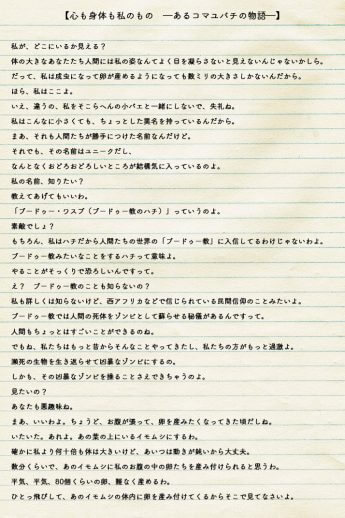 【心も身体も私のもの ―あるコマユバチの物語―】
私が、どこにいるか見える？
体の大きなあなたたち人間には私の姿なんてよく目を凝らさないと見えないんじゃないかしら。
だって、私は成虫になって卵が産めるようになっても数ミリの大きさしかないんだから。
ほら、私はここよ。
いえ、違うの、私をそこらへんの小バエと一緒にしないで、失礼ね。
私はこんなに小さくても、ちょっとした異名を持っているんだから。
まあ、それも人間たちが勝手につけた名前なんだけど。
それでも、その名前はユニークだし、
なんとなくおどろおどろしいところが結構気に入っているのよ。
私の名前、知りたい？
教えてあげてもいいわ。
「ブードゥー・ワスプ（ブードゥー教のハチ）」っていうのよ。
素敵でしょ？
もちろん、私はハチだから人間たちの世界の「ブードゥー教」に入信してるわけじゃないわよ。
ブードゥー教みたいなことをするハチって意味よ。
やることがそっくりで恐ろしいんですって。
え？ ブードゥー教のことも知らないの？
私も詳しくは知らないけど、西アフリカなどで信じられている民間信仰のことみたいよ。
ブードゥー教では人間の死体をゾンビとして蘇らせる秘儀があるんですって。
人間もちょっとはすごいことができるのね。
でもね、私たちはもっと昔からそんなことやってきたし、私たちの方がもっと過激よ。
瀕死の生物を生き返らせて凶暴なゾンビにするの。
しかも、その凶暴なゾンビを操ることさえできちゃうのよ。
見たいの？
あなたも悪趣味ね。
まあ、いいわよ。ちょうど、お腹が張って、卵を産みたくなってきた頃だしね。
いたいた。あれよ。あの葉の上にいるイモムシにするわ。
確かに私より何十倍も体は大きいけど、あいつは動きが鈍いから大丈夫。
数分くらいで、あのイモムシに私のお腹の中の卵たちを産み付けられると思うわ。
平気、平気、80個くらいの卵、難なく産めるわ。
ひとっ飛びして、あのイモムシの体内に卵を産み付けてくるからそこで見てなさいよ。